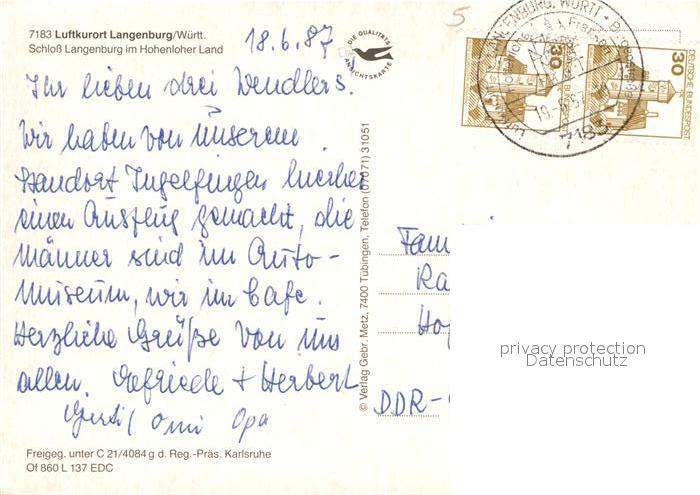 7183 Luftkurort Langenburg/Württ.
Schloß Langenburg im Hohenloher Land
18.6.87
5
DIE QUALITÄTS
ANSICHTSKARTE
Ihr lieben drei Wendlers.
Wir haben von unserem
Standort Ingelfingen hierher
einen Ausflug gemacht, die
Männer sind im Auto-
museum, wir im Cafe.
Herzliche Grüße von uns
allen. Elfriede + Herbert
Omi Opa
Freigeg. unter C 21/4084 g d. Reg.-Präs. Karlsruhe
Of 860 L 137 EDC
© Verlag Gebr. Metz, 7400 Tübingen, Telefon (07071) 31051
30
DEUTSCHE BUNDESPOST
30
DEUTSCHE BUNDESPOST
LANGENBURG, WÜRTT
7183
Fam
Ra
Ho
DDR-
privacy protection
Datenschutz